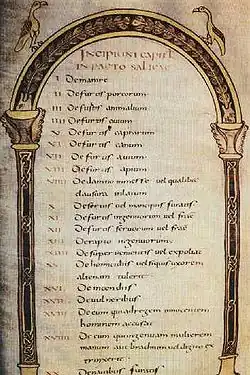 INCIPIUNT CAPITL
IN PACTO SALICAE
I De manire
II De furtis porcorum
III De furtis animalium
IIII De furtis ovium
V De furtis caprarum
VI De furtis canum
VII De furtis avium
VIII De furtis apium
VIIII De damno in messe vel qualibet
clausura inlatum
De servis vel mancipiis furatis
XI De furtis ingenuorum vel frac
XII De furtis servorum vel frac
XIII De rapto ingenuorum
XIIII De super venientis vel expoliat
XV De homicidiis vel si quis uxorem
alienam tulerit
XVI De incendiis
XVII De vulneribus
XVIII De eum qui ad regem innocentem
hominem accusat
De eum qui ingenuam mulierem
manum aut brachium vel digito ex
trinxerit
De navibus furatis